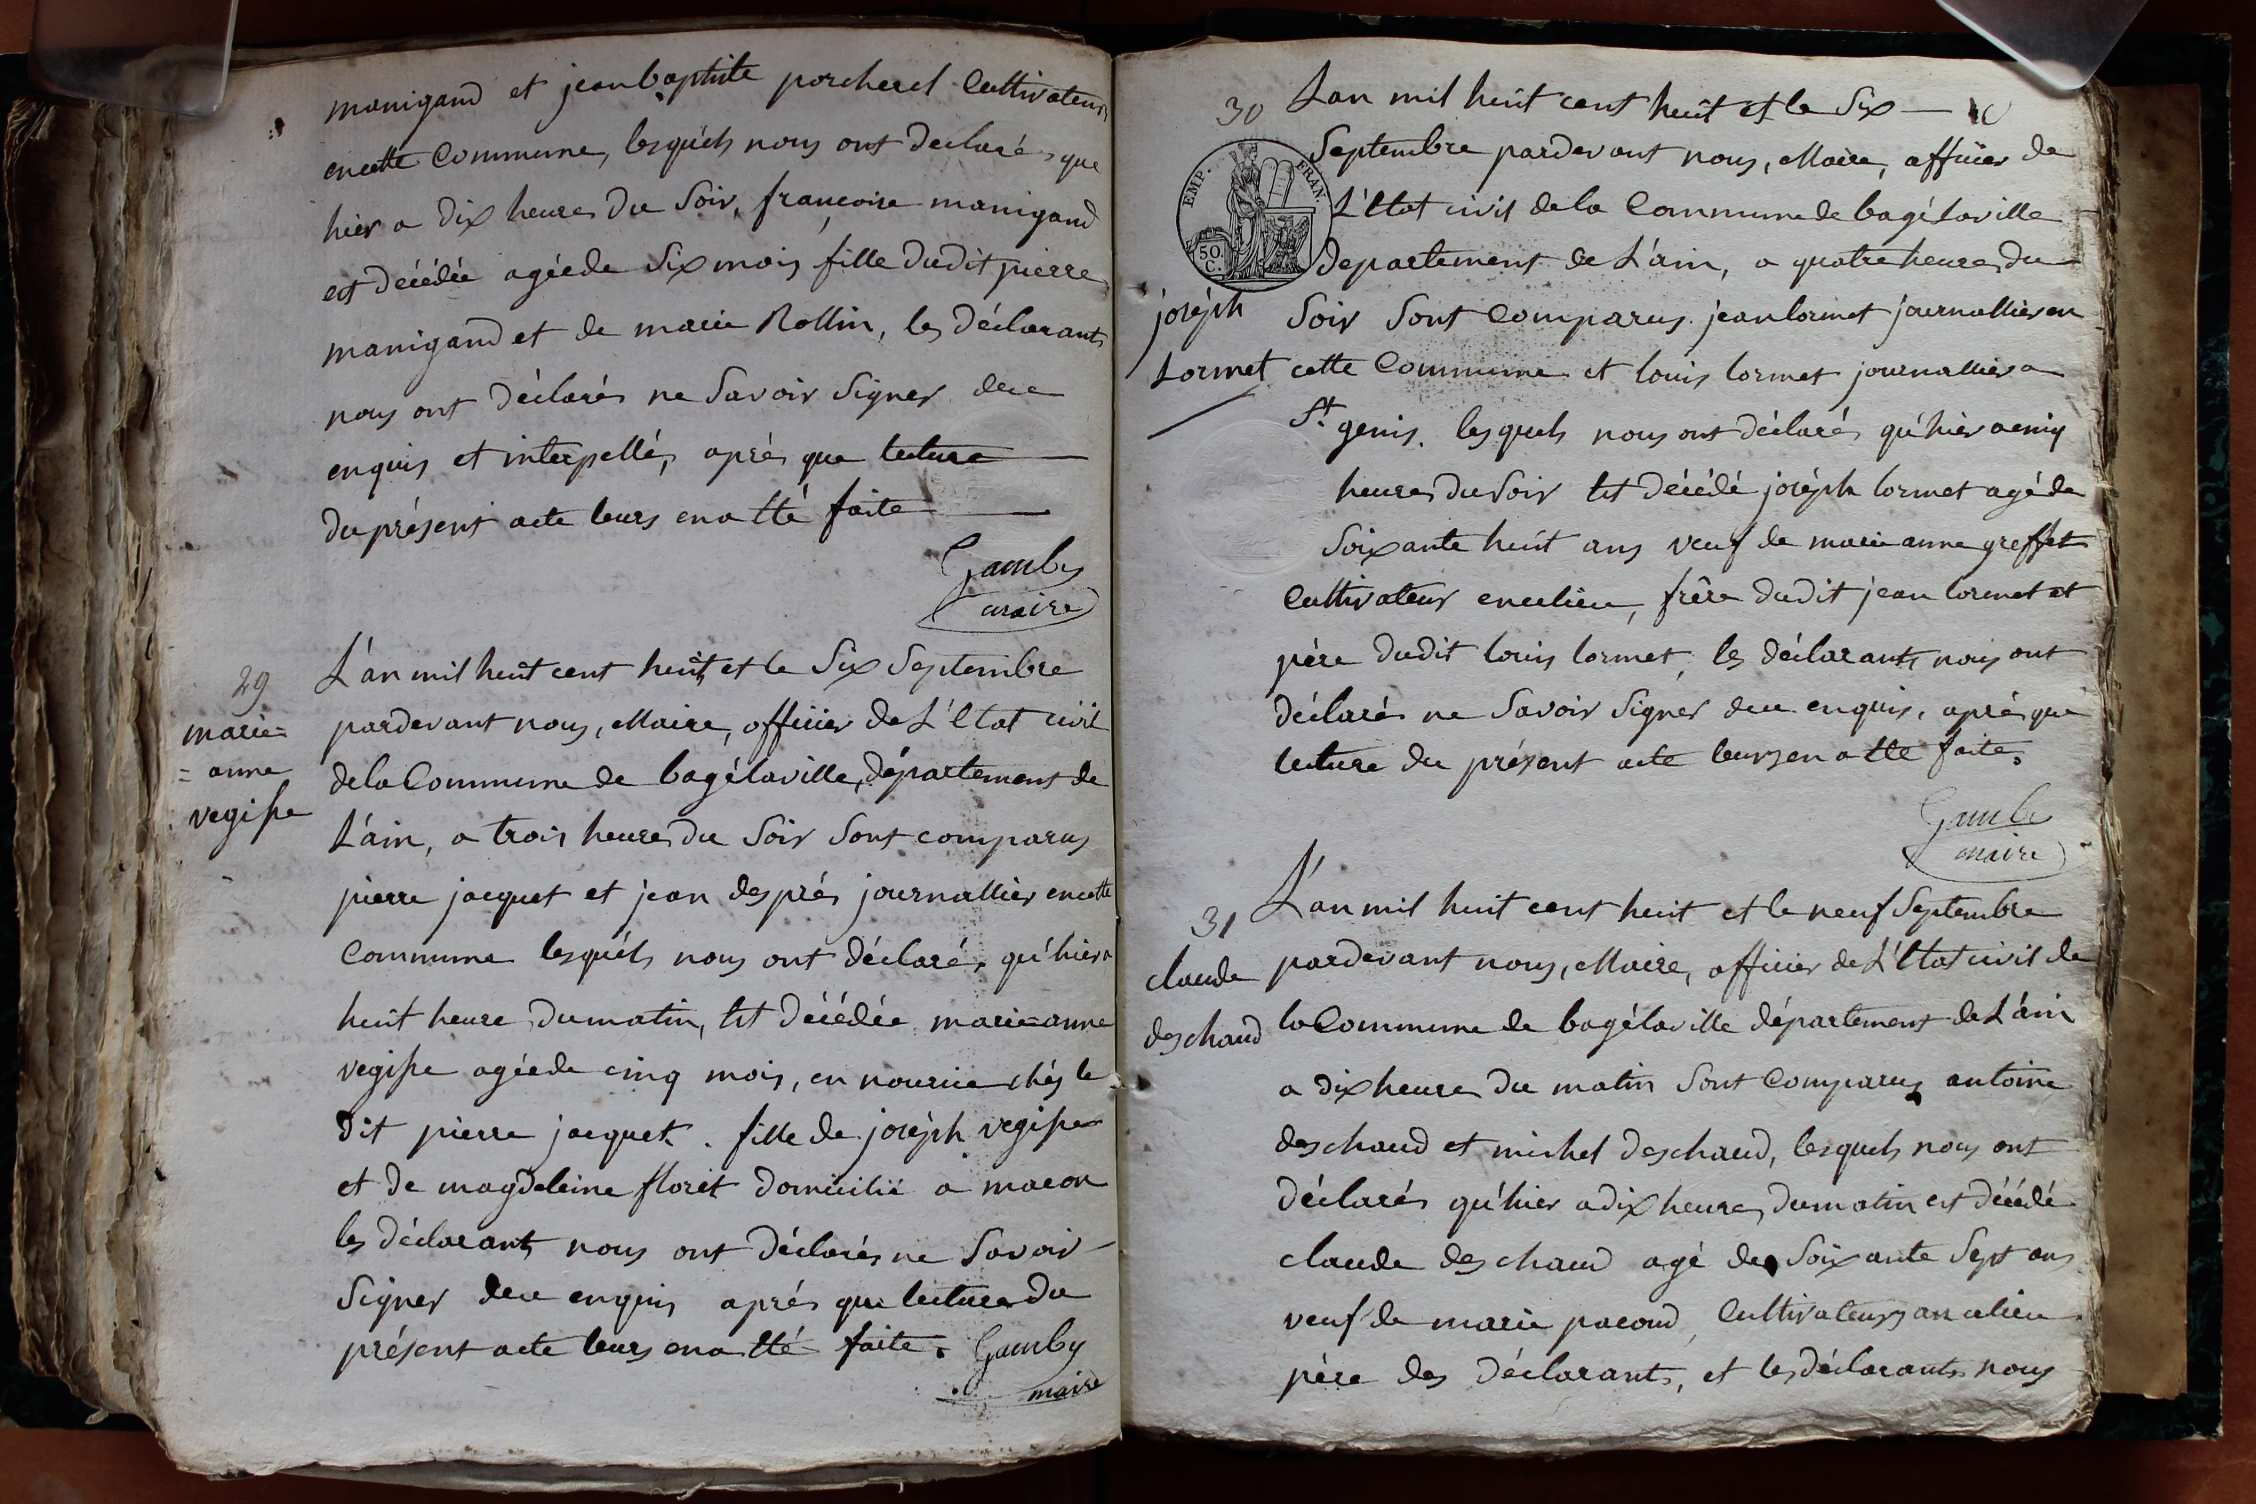 manigand et jean baptiste porcherel Cultivateurs
en cette Commune, lesquels nous ont declarés que
hier a dix heures du Soir, francoise manigand
est décédée agée de Six mois fille dudit pierre
manigand et de marie Rollin, les déclarants
nous ont déclarés ne Savoir Signer de ce
enquis et interpellés, après que lecture
du présent acte leurs en a Eté faite
Gamby
maire
29
marie=
= anne
vegisse
L'an mil huit cent huit et le Six Septembre
pardevant nous, Maire, officier de L'Etat civil
de la Commune de bagélaville, département de
L'ain, a trois heures du Soir Sont comparus
pierre jacquet et jean desprès journallier en cette
Commune lesquéls nous ont déclarés qu'hier a
huit heure du matin, Est décédée marie=anne
vegisse agée de cinq mois, en nourice chés le
dit pierre jacquet. fille de joséph vegisse
et de magdeleine floret domicilié a macon
les déclarants nous ont déclarés ne Savoir
Signer de ce enquis après que lecture du
présent acte leurs en a Eté faite. Gamby
maire
30
L'an mil huit cent huit et le Six
Septembre pardevant nous, Maire, officier de
EMP. FRAN.
50 C.
L'Etat civil de la Commune de bagélaville
département de L'ain, a quatre heures du
joséph
Lormet
Soir Sont Comparus jean lormet journallier en
cette Commune et louis lormet journallier a
St. genis. lesquels nous ont déclarés qu'hier a cinq
heures du Soir Est décédé joséph lormet agé de
Soixante huit ans veuf de marie anne greffet
Cultivateur en ce lieu, frère dudit jean lormet et
père dudit louis lormet, les déclarants nous ont
déclarés ne Savoir Signer de ce enquis, après que
lecture du présent acte leurs en a Eté faite.
Gamby
maire
31
claude
deschaud
L'an mil huit cent huit et le neuf Septembre
pardevant nous, Maire, officier de L'Etat civil de
la Commune de bagélaville département de L'ain
a dix heures du matin Sont Comparus antoine
deschaud et michel deschaud, lesquels nous ont
déclarés qu'hier a dix heures du matin est décédé
claude deschaud agé de Soixante Sept ans
veuf de marie pacoud, Cultivateurs en ce lieu
père des déclarants, et les déclarants nous